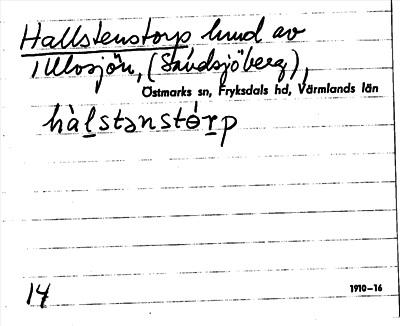 Hallstenstorp hmd av
Ullosjön, (Sandsjöberg),
Östmarks sn, Fryksdals hd, Värmlands län
hàl̲stənstór̲p
14
1910-16